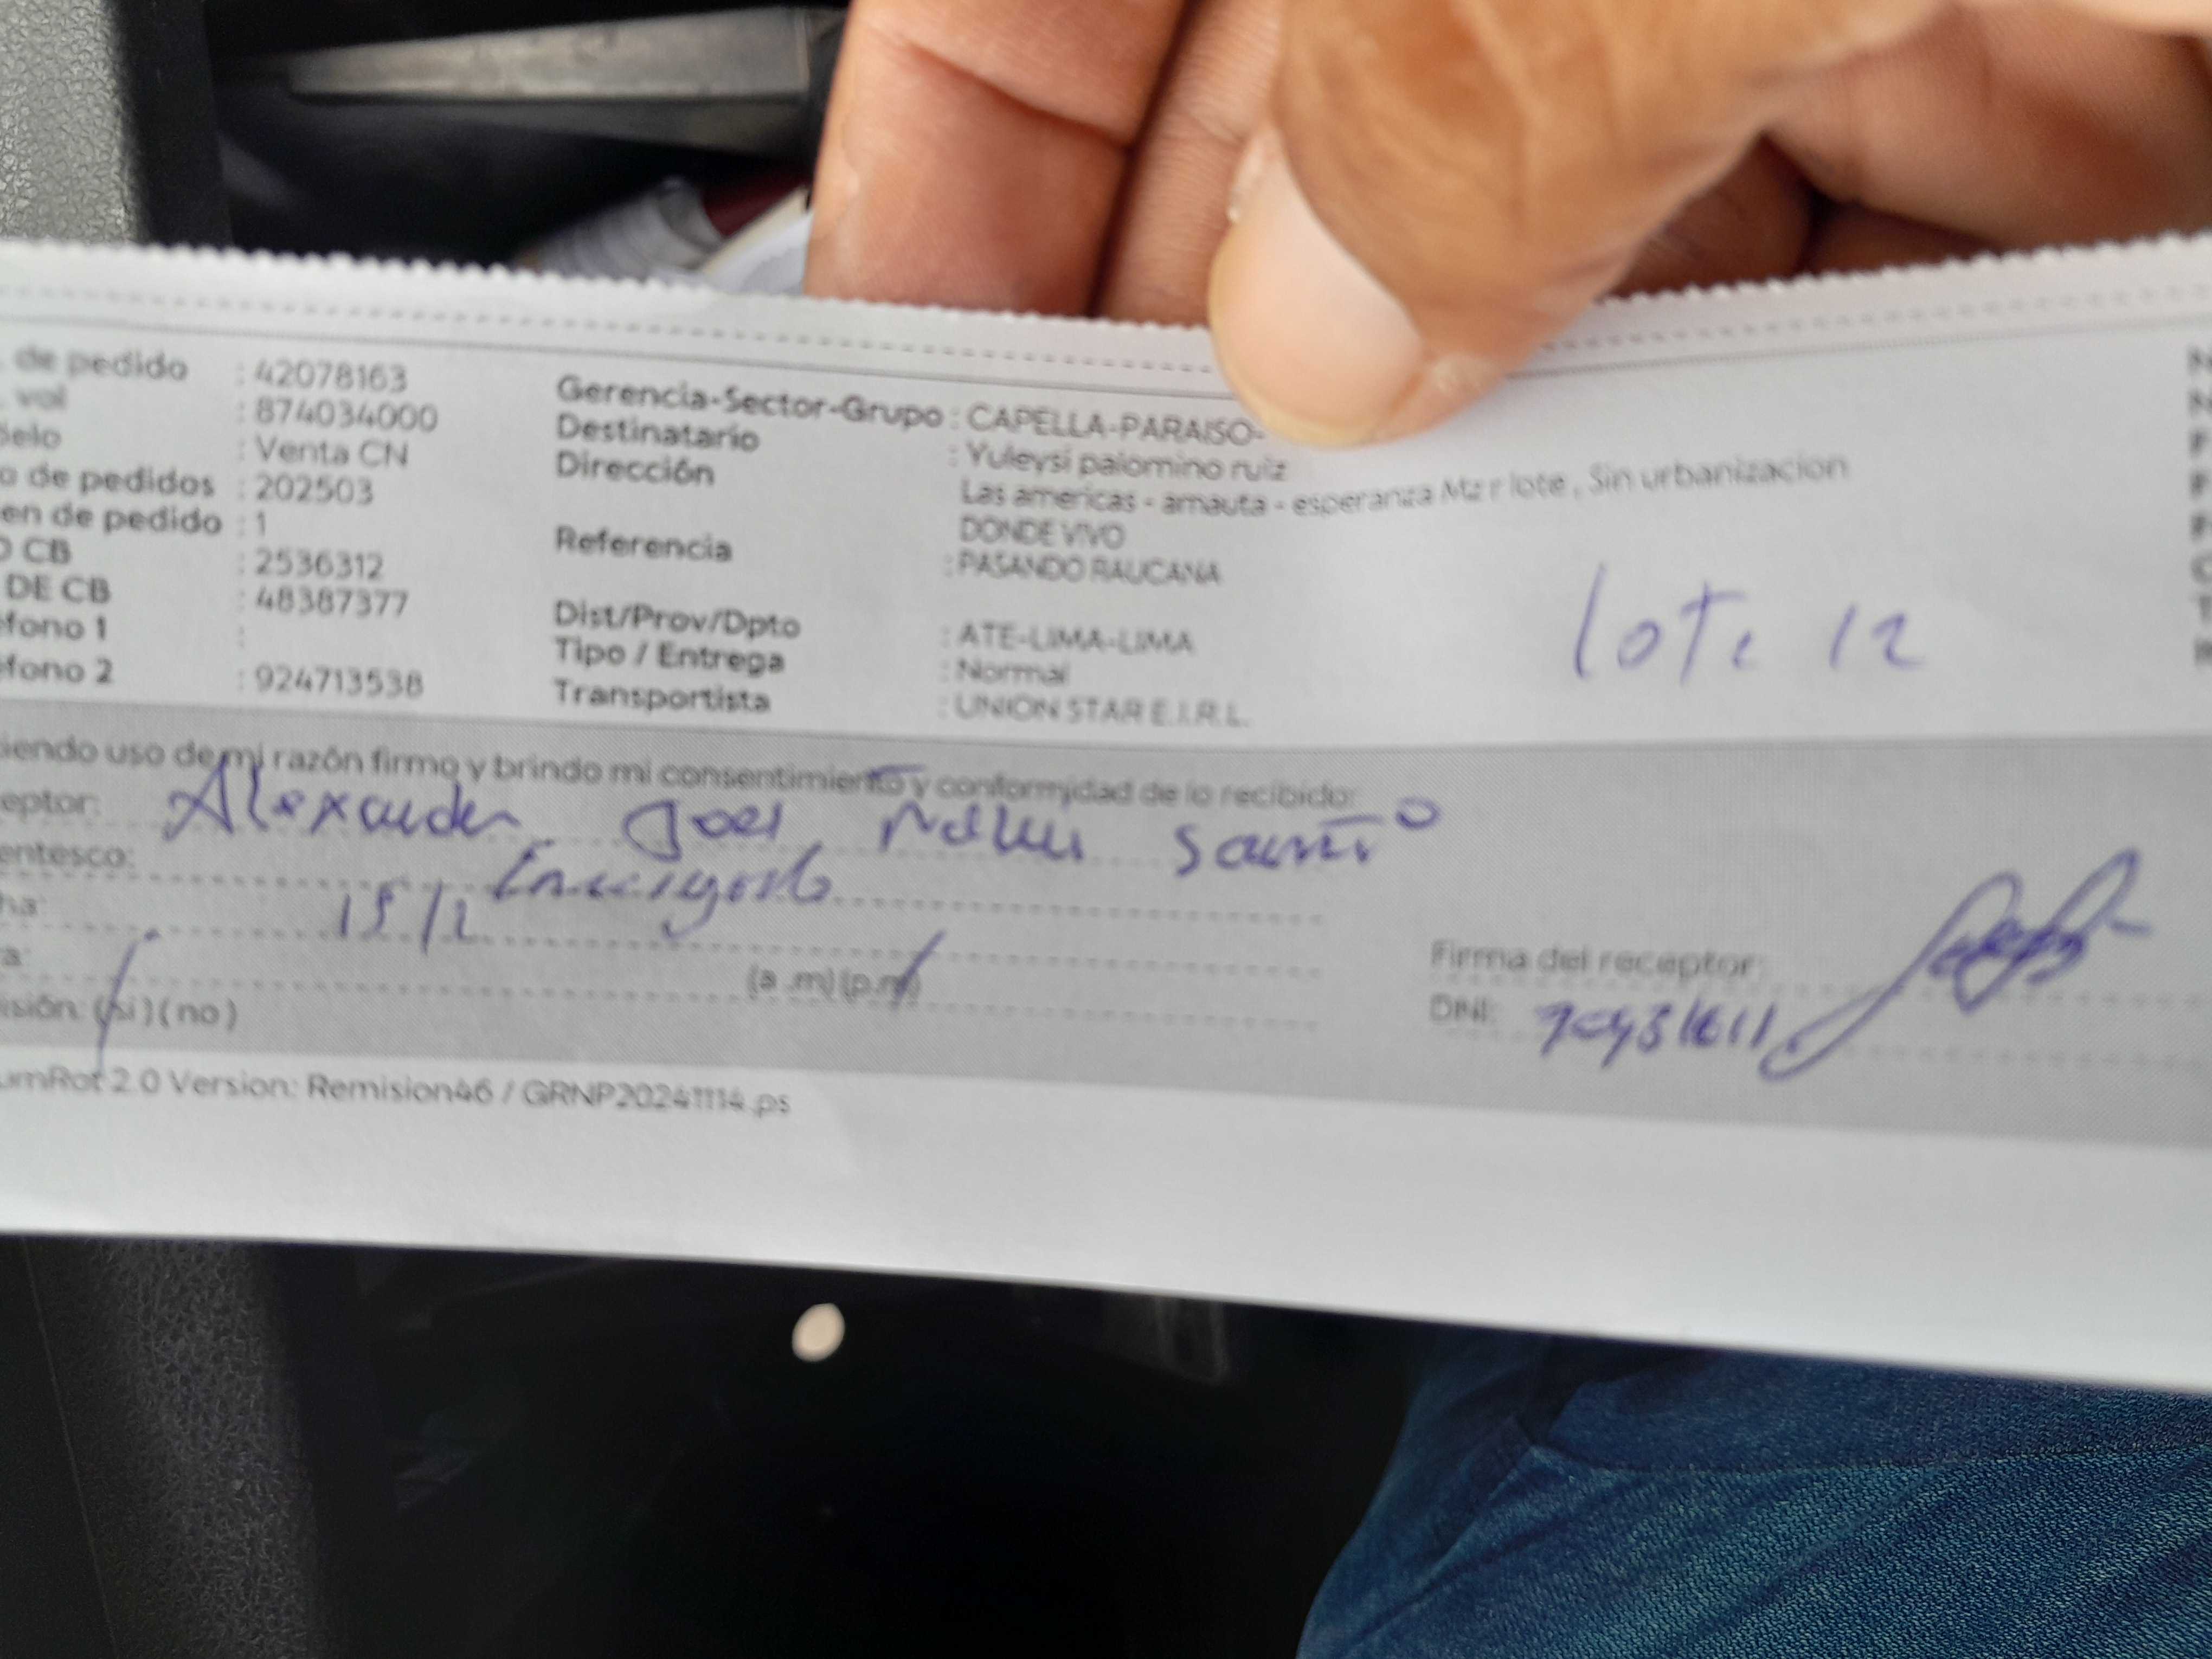 de pedido : 42078163
vol : 874034000
delo : Venta CN
o de pedidos : 202503
en de pedido : 1
O CB : 2536312
DE CB : 48387377
éfono 1 :
éfono 2 : 924713538
Gerencia-Sector-Grupo : CAPELLA-PARAISO-
Destinatario : Yuleysi palomino ruiz
Dirección Las americas - amauta - esperanza Mz r lote , Sin urbanizacion
DONDE VIVO
Referencia : PASANDO RAUCANA
Dist/Prov/Dpto : ATE-LIMA-LIMA
Tipo / Entrega : Normal
Transportista : UNION STAR E.I.R.L.
lote 12
iendo uso de mi razón firmo y brindo mi consentimiento y conformidad de lo recibido:
eptor: Alexander Joel
entesco: Encargado
ha: 15/2
a: (a .m) (p.m)
isión: (si) (no)
Firma del receptor:
DNI:
umRot 2.0 Version: Remision46 / GRNP20241114.ps